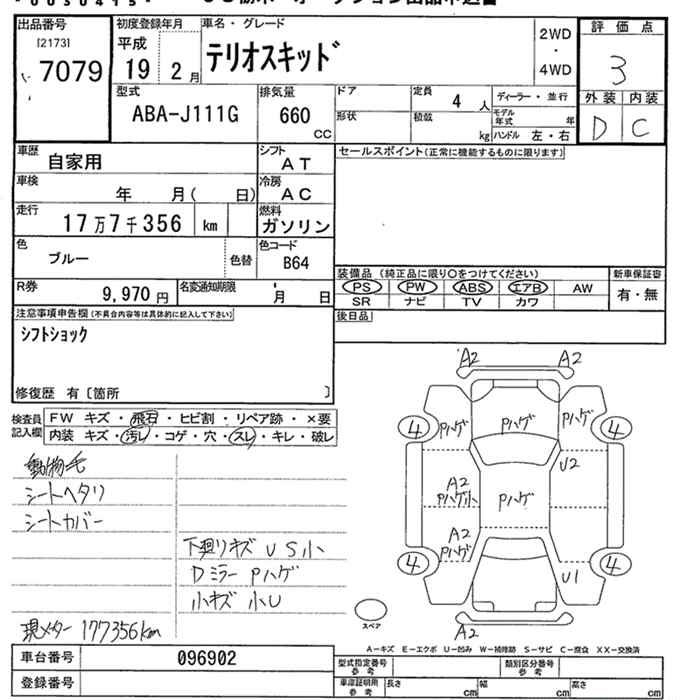 出品番号 初度登録年月 車名・グレード 2WD 評価点
[2173] 平成 テリオスキッド ・ 3
7079 19 2月 4WD 外装 内装
型式 排気量 ドア 定員 4人 ディーラー・並行 D C
ABA-J111G 660 CC 形状 積載 kg モデル年式 年
ハンドル 左・右
車歴 自家用 シフト AT セールスポイント(正常に機能するものに限ります)
車検 年 月( 日) 冷房 AC
走行 17万7千356 km 燃料 ガソリン
色 ブルー 色替 色コード B64
装備品(純正品に限り○をつけてください) 新車保証書
R券 9,970円 名変通知期限 月 日 PS PW ABS エアB AW 有・無
SR ナビ TV カワ
注意事項申告欄(不具合内容等は具体的に記入して下さい) 後日品
シフトショック
修復歴 有〔箇所 〕
A2 A2
検査員記入欄 FW キズ・飛石・ヒビ割・リペア跡・×要
内装 キズ・汚レ・コゲ・穴・スレ・キレ・破レ
4 Pハゲ Pハゲ Pハゲ 4
動物毛 U2
シートヘタリ A2 Pハゲ小 Pハゲ
シートカバー A2 Pハゲ
下廻リキズ US小 4 4
Dミラー Pハゲ U1
小キズ 小U
スペア
現メーター 177356km A2
A-キズ E-エクボ U-凹み W-補修跡 S-サビ C-腐食 XX-交換済
車台番号 096902 型式指定番号 参考 類別区分番号 参考
登録番号 車庫証明用 参考 長さ cm 幅 cm 高さ cm